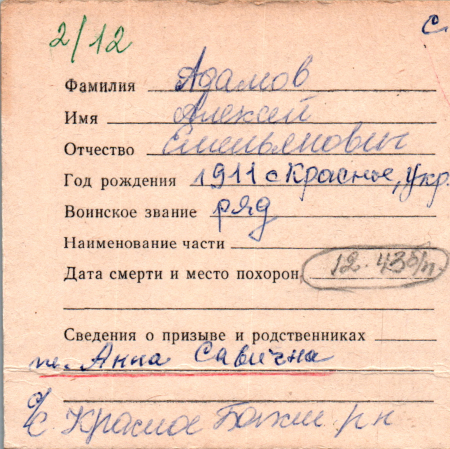 2/12 с.
Фамилия Адамов
Имя Алексей
Отчество Емельянович
Год рождения 1911 с Красное, Укр.
Воинское звание ряд
Наименование части
Дата смерти и место похорон 12.43 б/п
Сведения о призыве и родственниках
Анна Савична
с. Красное р-н